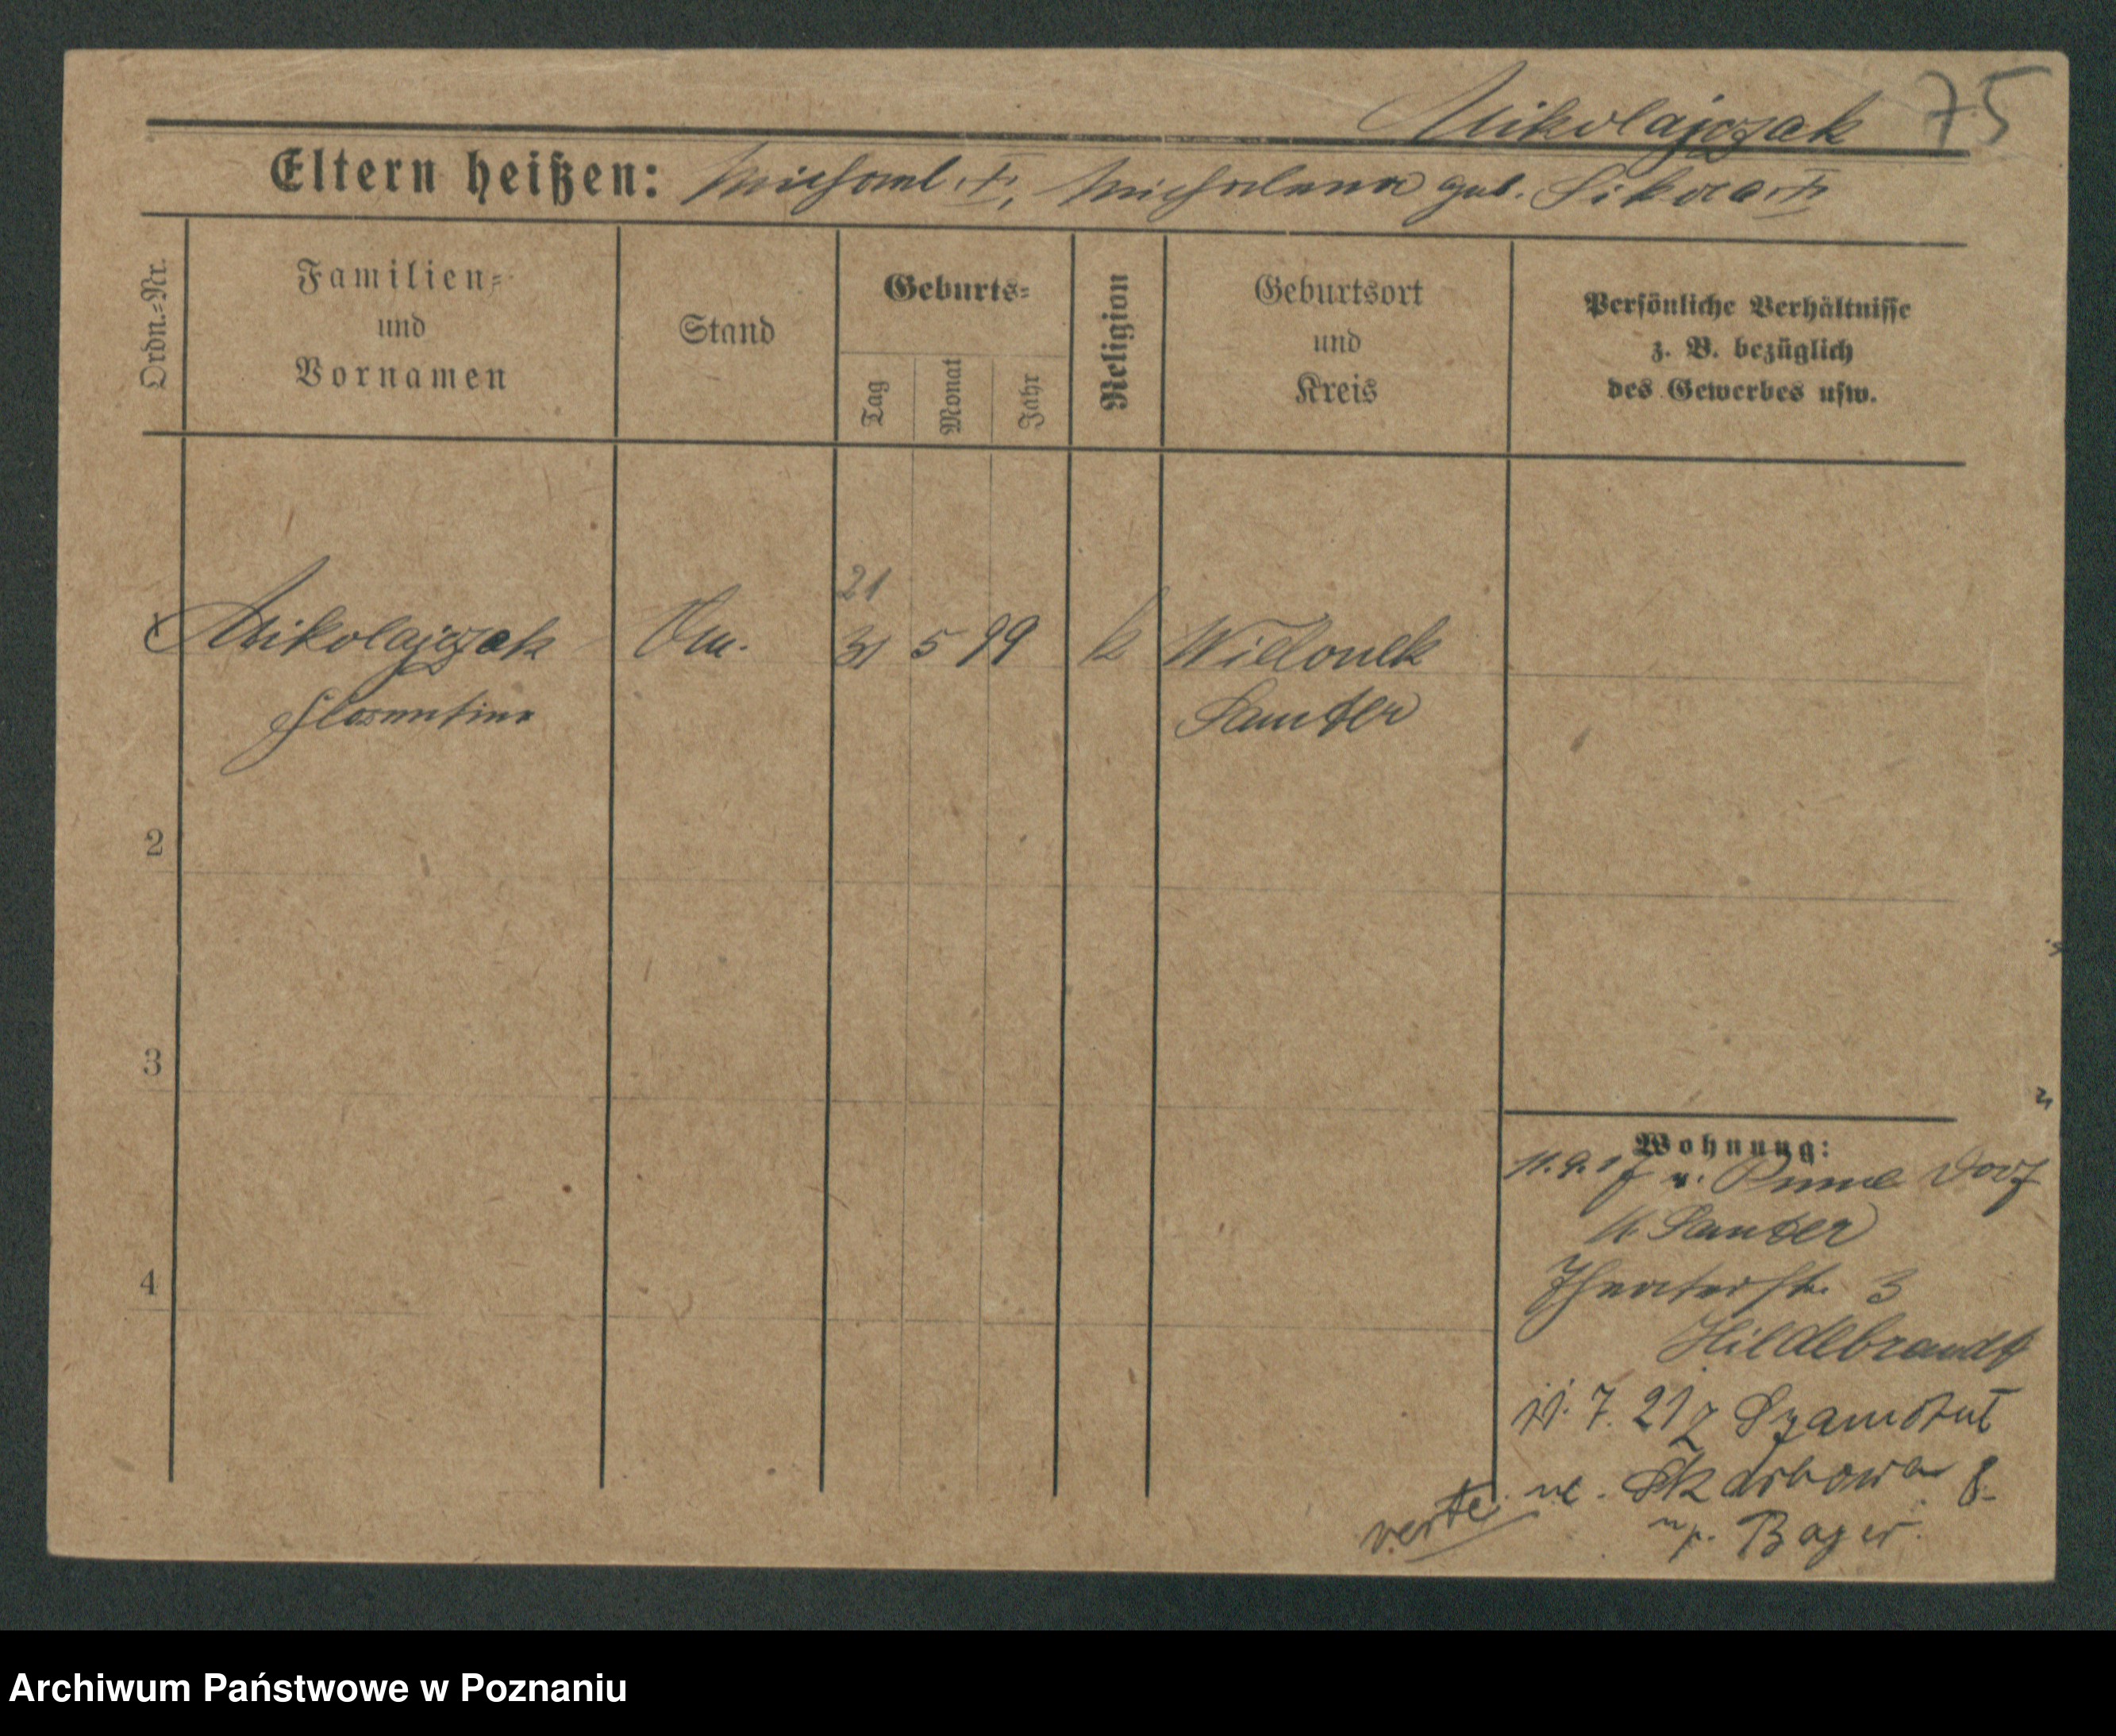 Mikolajczak 75
Eltern heißen: Michael †, Michalina geb. Sikora †
Ordn.=Nr.
Familien=
und
Vornamen
Stand
Geburts=
Tag
Monat
Jahr
Religion
Geburtsort
und
Kreis
Persönliche Verhältnisse
z. B. bezüglich
des Gewerbes usw.
21
Mikolajczak 31 5 99 k Wielonek
Florentine Samter
2
3
4
Wohnung:
11.9.17 v. Pinne Dorf
K. Samter
Theaterstr. 3
Hildebrandt
11. 7. 21 z Szamotuł
ul. Skarbowa 8
verte
np. Bajer.
Archiwum Państwowe w Poznaniu